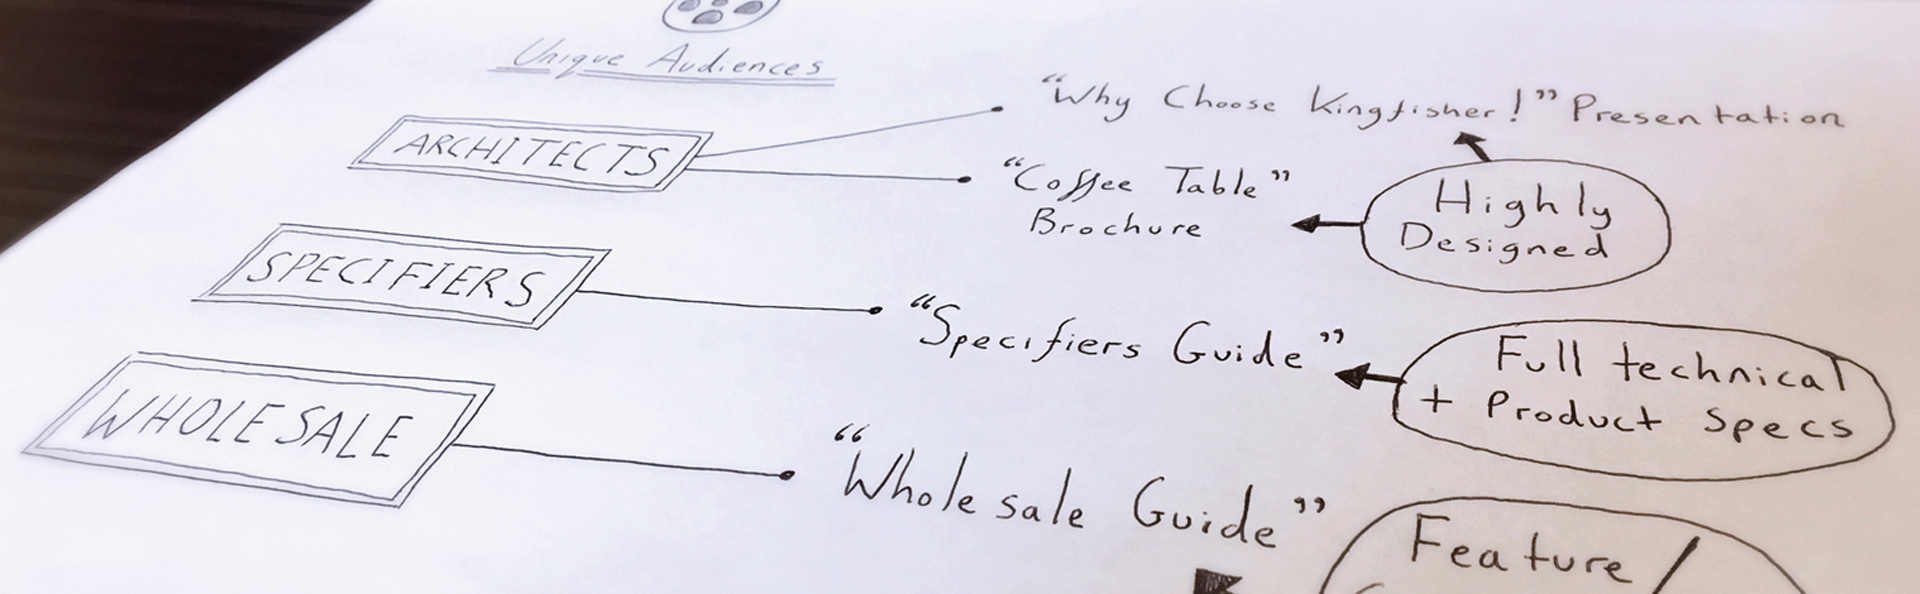 Unique Audiences
ARCHITECTS
"Why Choose Kingfisher!" Presentation
"Coffee Table"
Brochure
Highly
Designed
SPECIFIERS
"Specifiers Guide"
Full technical
+ Product Specs
WHOLESALE
"Wholesale Guide"
Feature /